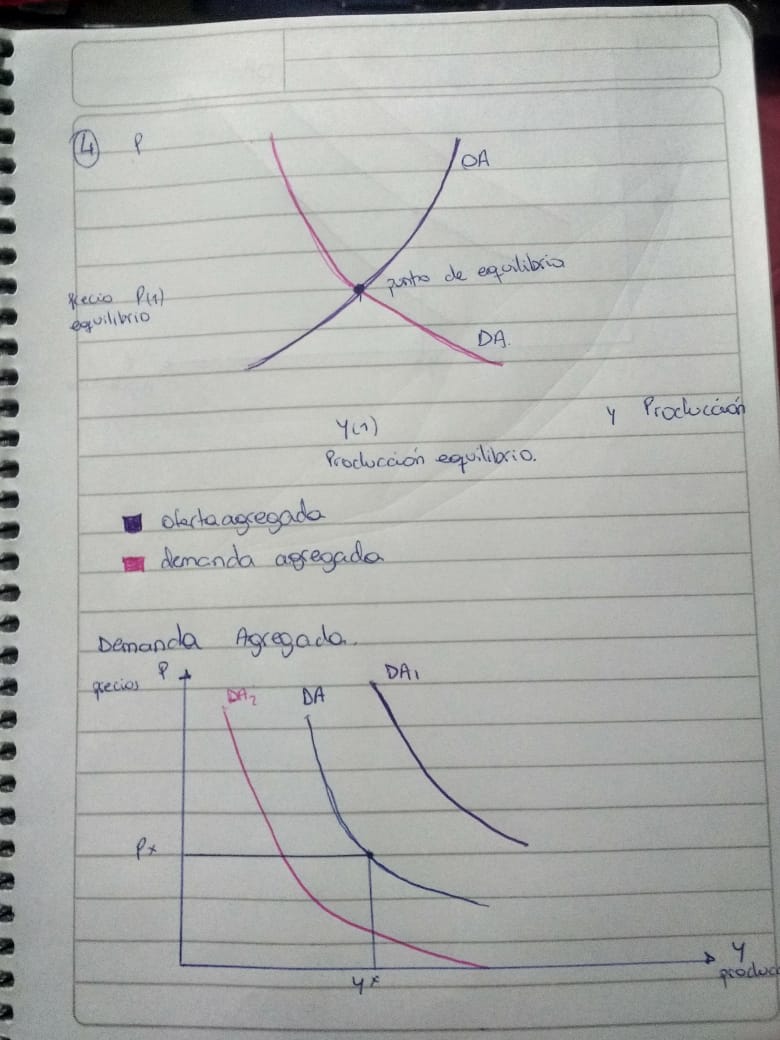 4 P
OA
punto de equilibrio
precio P(1)
equilibrio
DA.
Y Producción
Y(1)
Producción equilibrio.
oferta agregada
demanda agregada
Demanda Agregada.
P
precios
DA2 DA DA1
Px
Y
produc
Yx